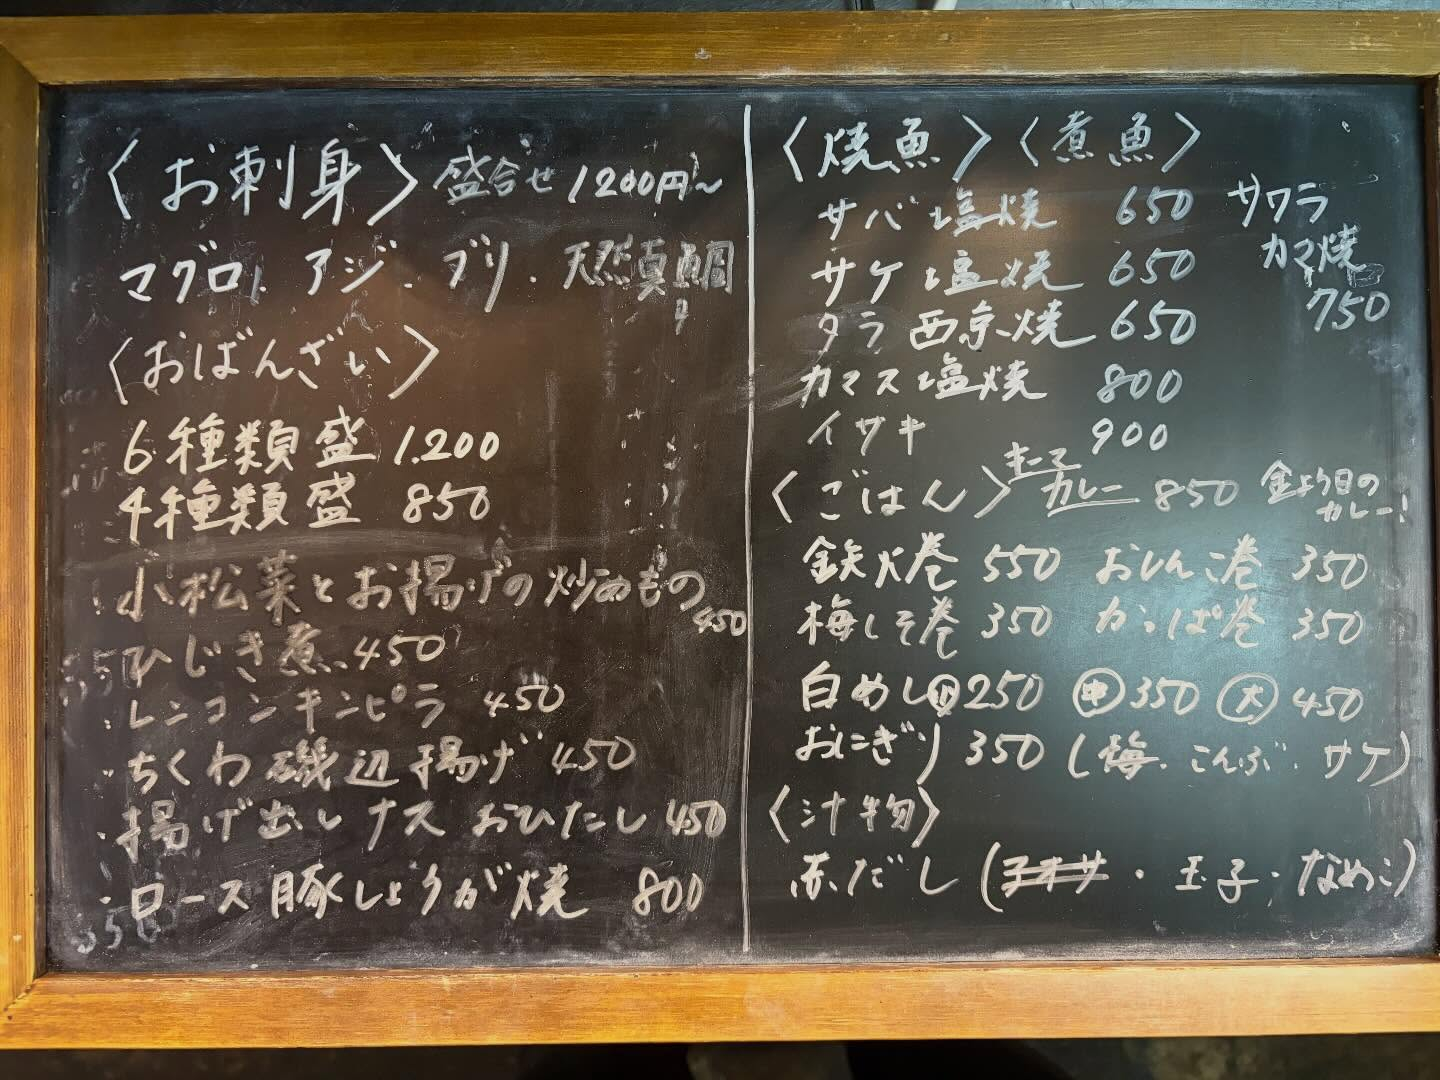 〈お刺身〉盛合せ 1200円~
マグロ. アジ. ブリ. 天然真鯛
〈おばんざい〉
6種類盛 1.200
4種類盛 850
小松菜とお揚げの炒めもの 450
ひじき煮 450
レンコンキンピラ 450
ちくわ磯辺揚げ 450
揚げ出しナスおひたし 450
ロース豚しょうが焼 800
〈焼魚〉〈煮魚〉
サバ塩焼 650
サケ塩焼 650
タラ西京焼 650
カマス塩焼 800
イサキ 900
サワラ
カマ焼
750
〈ごはん〉キーマカレー 850 金より目の
カレー!
鉄火巻 550 おしんこ巻 350
梅しそ巻 350 かっぱ巻 350
白めし 小 250 中 350 大 450
おにぎり 350 (梅. こんぶ. サケ)
〈汁物〉
赤だし (アオサ・玉子・なめこ)